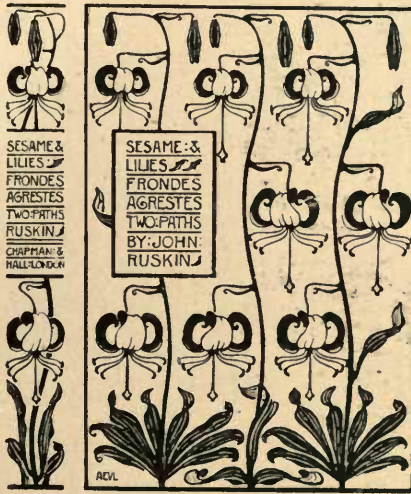 SESAME &
LILIES
FRONDES
AGRESTES
TWO:PATHS
RUSKIN
CHAPMAN:&
HALL:LONDON
SESAME:&
LILIES
FRONDES
AGRESTES
TWO:PATHS
BY:JOHN:
RUSKIN